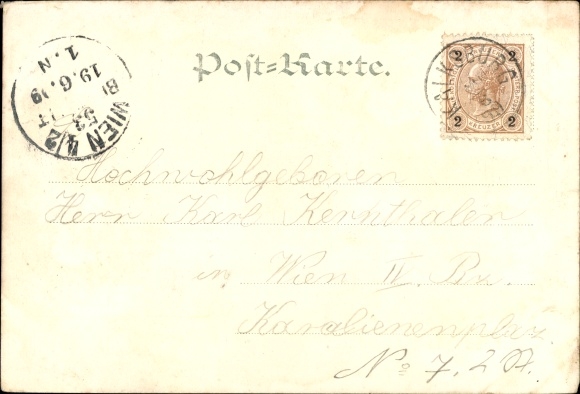 Post=Karte.
WIEN 4/2
53
19.6.99
1.N
KALKSBURG
2 2
2 KREUZER 2
Hochwohlgeboren
Herrn Karl Kernthaler
in Wien IV. Bz.
Karolinenplaz
No 7. 2